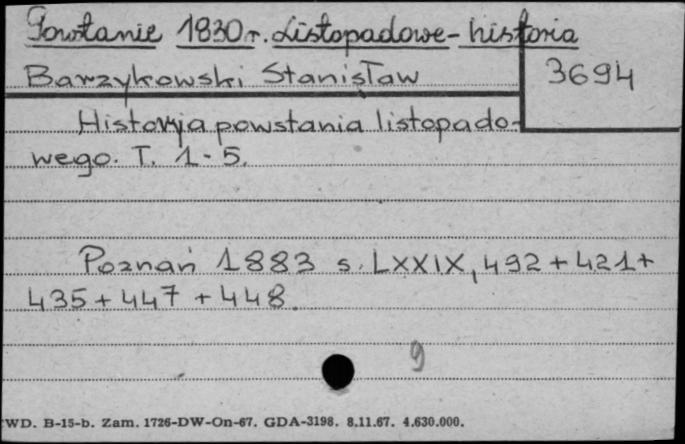 Powstanie 1830 r. Listopadowe - historia
Barzykowski Stanisław
3694
Historyja powstania listopado-
wego. T. 1-5.
Poznań 1883 s. LXXIX, 492 + 421 +
435 + 447 + 448.
9
WD. B-15-b. Zam. 1726-DW-On-67. GDA-3198. 8.11.67. 4.630.000.